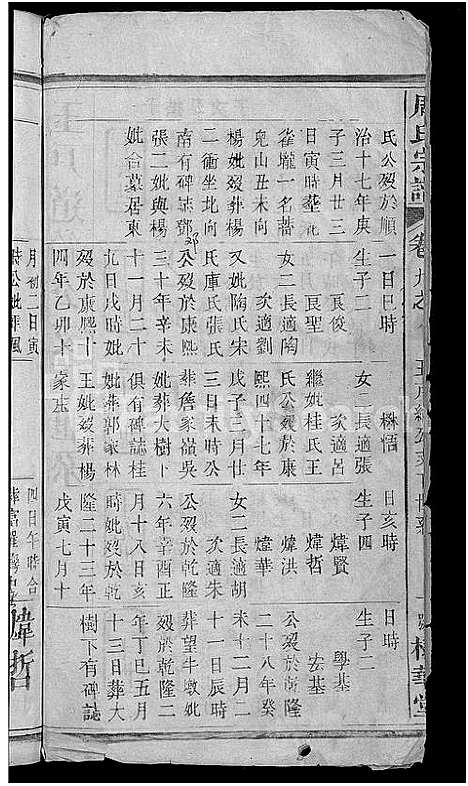 周氏宗譜
卷九
氏公歿於順
治十七年庚
子三月廿三
日寅時塟祀
崔壠一名蓍
兒山丑未向
二衝坐北向
楊妣歿葬楊
南有碑誌鄧
張二妣與楊
妣合墓居東
一日巳時
生子二
艮俊
艮聖
女二長適陶
次適劉
又妣陶氏宋
氏庫氏張氏
公歿於康熙
三十年辛未
十一月二十
九日戌時妣
歿於康熙十
四年乙卯十
月初二日寅
時公妣葬風
楙悟
女二長適張
次適呂
繼妣桂氏王
氏公歿於康
熙四十七年
戊子三月廿
三日未時公
葬詹家嶺吳
妣葬大樹卜
俱有碑誌桂
妣葬郭家林
王妣歿葬楊
家庄
日亥時
生子四
煒賢
煒哲
煒洪
煒華
女二長適胡
次適朱
公歿於乾隆
六年辛酉正
月十八日亥
時妣歿於乾
隆二十三年
戊寅七月十
四日午時合
煒哲
日時
生子二
學基
宏基
公歿於乾隆
二十八年癸
未十二月二
十一日辰時
葬望牛墩妣
歿於乾隆二
年丁巳五月
十三日葬大
樹下有碑誌